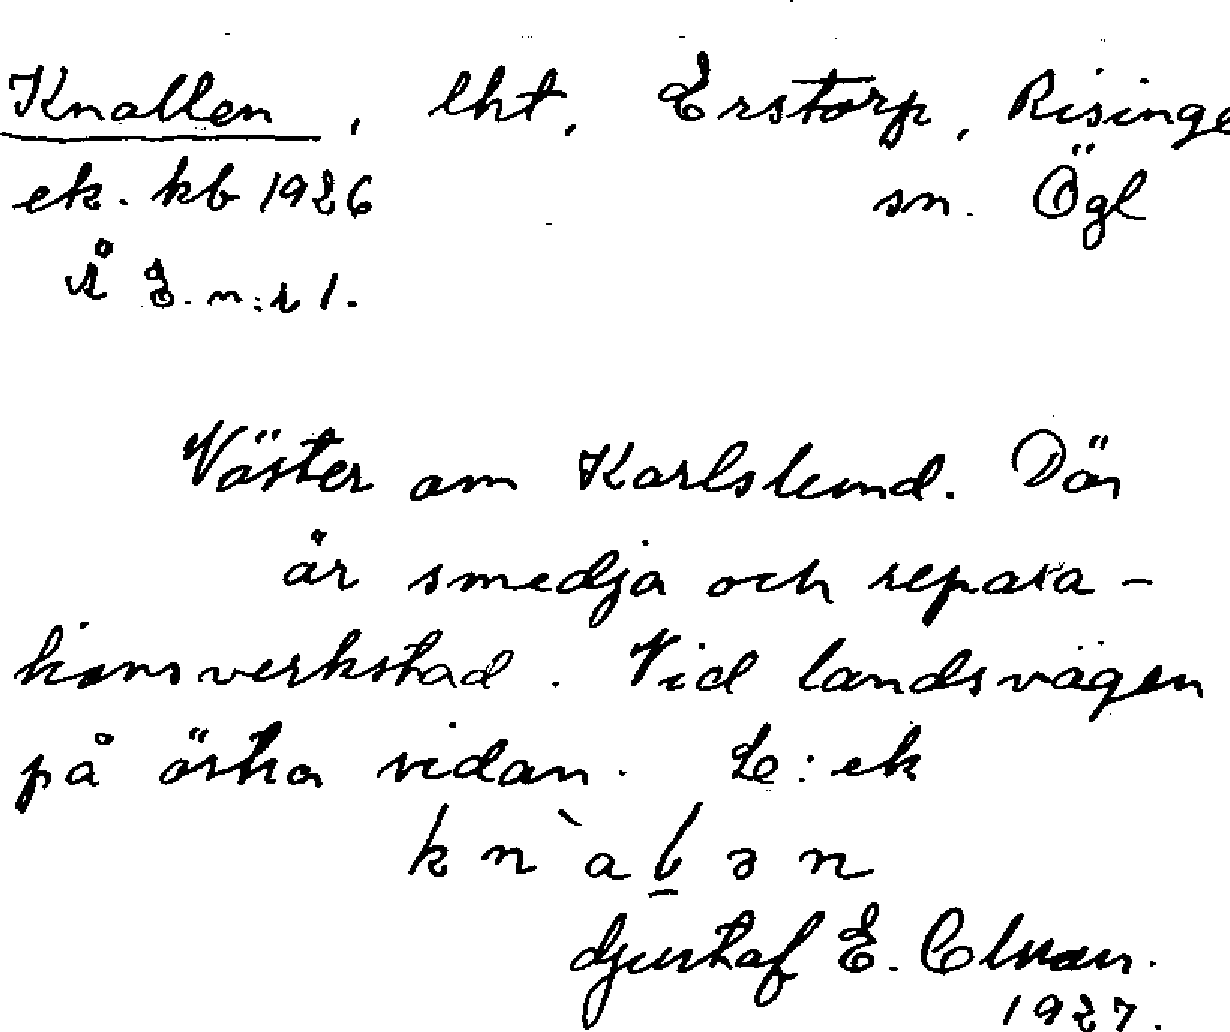 Knallen, lht, Erstorp, Risinge
ek. kb 1926 sn. Ögl
å E. n:r 1.
Väster om Karlslund. Där
är smedja och repara-
tionsverkstad. Vid landsvägen
på östra sidan. L:ek
knˋalən
Gustaf E.
1927.